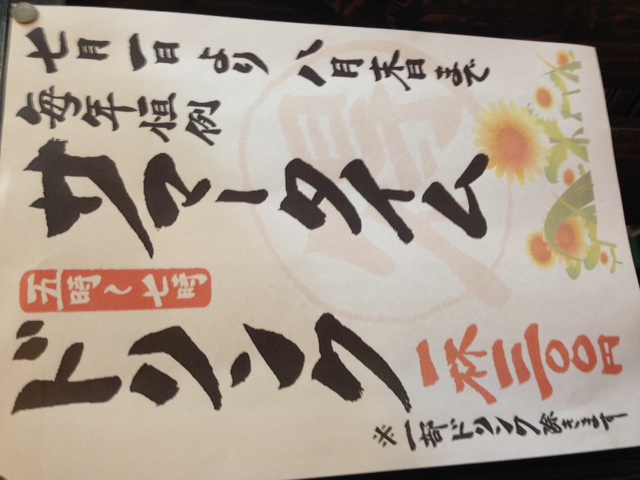 七月一日より八月末日まで
毎年恒例
サマータイム
五時〜七時
ドリンク
一杯三〇〇円
※一部ドリンク除きます
得